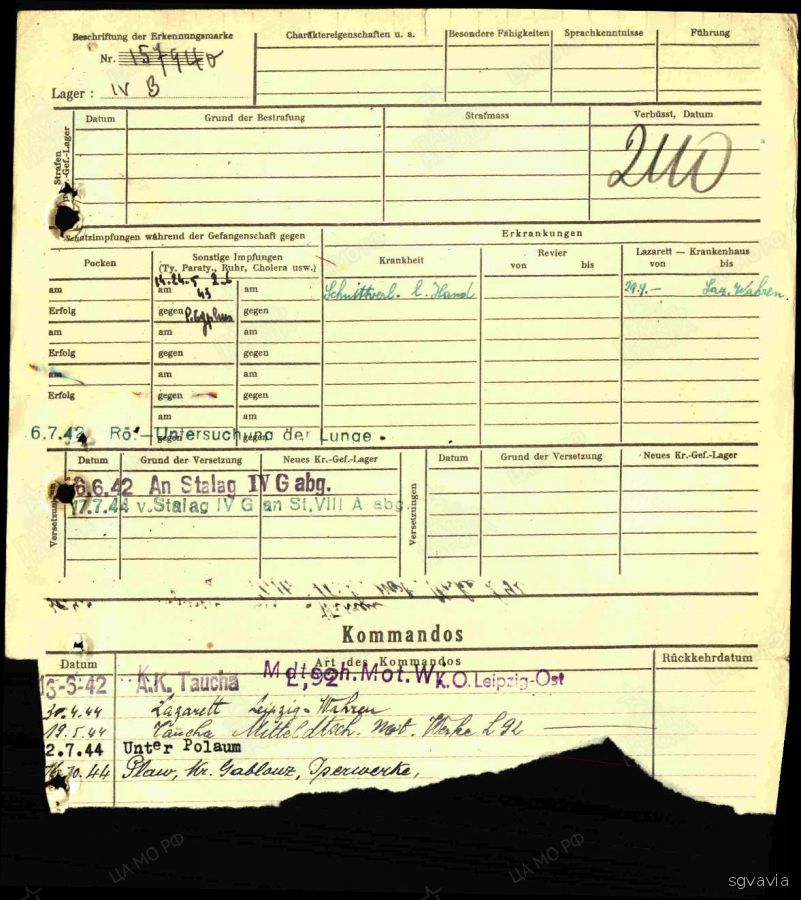 Beschriftung der Erkennungsmarke
Nr. 157940
Lager: IV B
Charaktereigenschaften u. a.
Besondere Fähigkeiten
Sprachkenntnisse
Führung
Strafen
Datum
Grund der Bestrafung
Strafmass
Verbüsst, Datum
Schutzimpfungen während der Gefangenschaft gegen
Erkrankungen
Pocken
Sonstige Impfungen
(Ty. Paraty., Ruhr, Cholera usw.)
Krankheit
Revier
von bis
Lazarett — Krankenhaus
von bis
am
am
43
am
Schnittverl. l. Hand
29.4.— Laz. Wahren.
Erfolg
gegen
gegen
am
am
am
Erfolg
gegen
gegen
am
am
am
Erfolg
gegen
gegen
am
am
gegen
gegen
6.7.42 Rö.—Untersuchung der Lunge.
Versetzungen
Datum
Grund der Versetzung
Neues Kr.-Gef.-Lager
Versetzungen
Datum
Grund der Versetzung
Neues Kr.-Gef.-Lager
6.6.42 An Stalag IV G abg.
17.7.44 v. Stalag IV G an St. VIII A abg
Kommandos
Datum
Art des Kommandos
Rückkehrdatum
A.K. Taucha Mdtsch. Mot. W. K.O. Leipzig-Ost
L 92
30.4.44 Lazarett Leipzig-Wahren
19.5.44 Taucha Mitteldtsch. Mot. Werke L 92
2.7.44 Unter Polaum
10.44 Kr. Gablonz,
ЦА МО РФ
ЦА МО РФ
sgvavia